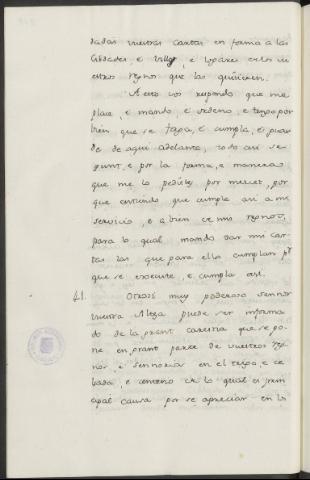 dadas vuestras cartas en forma a las
cibdades, e villas, e logares de los vu
estros regnos que las quisieren.
A esto vos respondo que me
place, e mando, e ordeno, e tengo por
bien que se faga, e cumpla, e guar
de de aqui adelante, todo asi se
gunt, e por la forma, e manera
que me lo pedistes por merced, por
que entiendo que cumple asi a mi
servicio, e a bien de mis regnos,
para lo qual mando dar mis car
tas las que para ello cumplan pr
que se execute, e cumpla asi.
41. Otrosi muy poderoso sennor
vuestra Alteza puede ser informa
do de la grant carestia que se po
ne en grant parte de vuestros reg
nos, e sennorios en el trigo, e ce
bada, e centeno de lo qual es prin
cipal causa por se apreciar en los